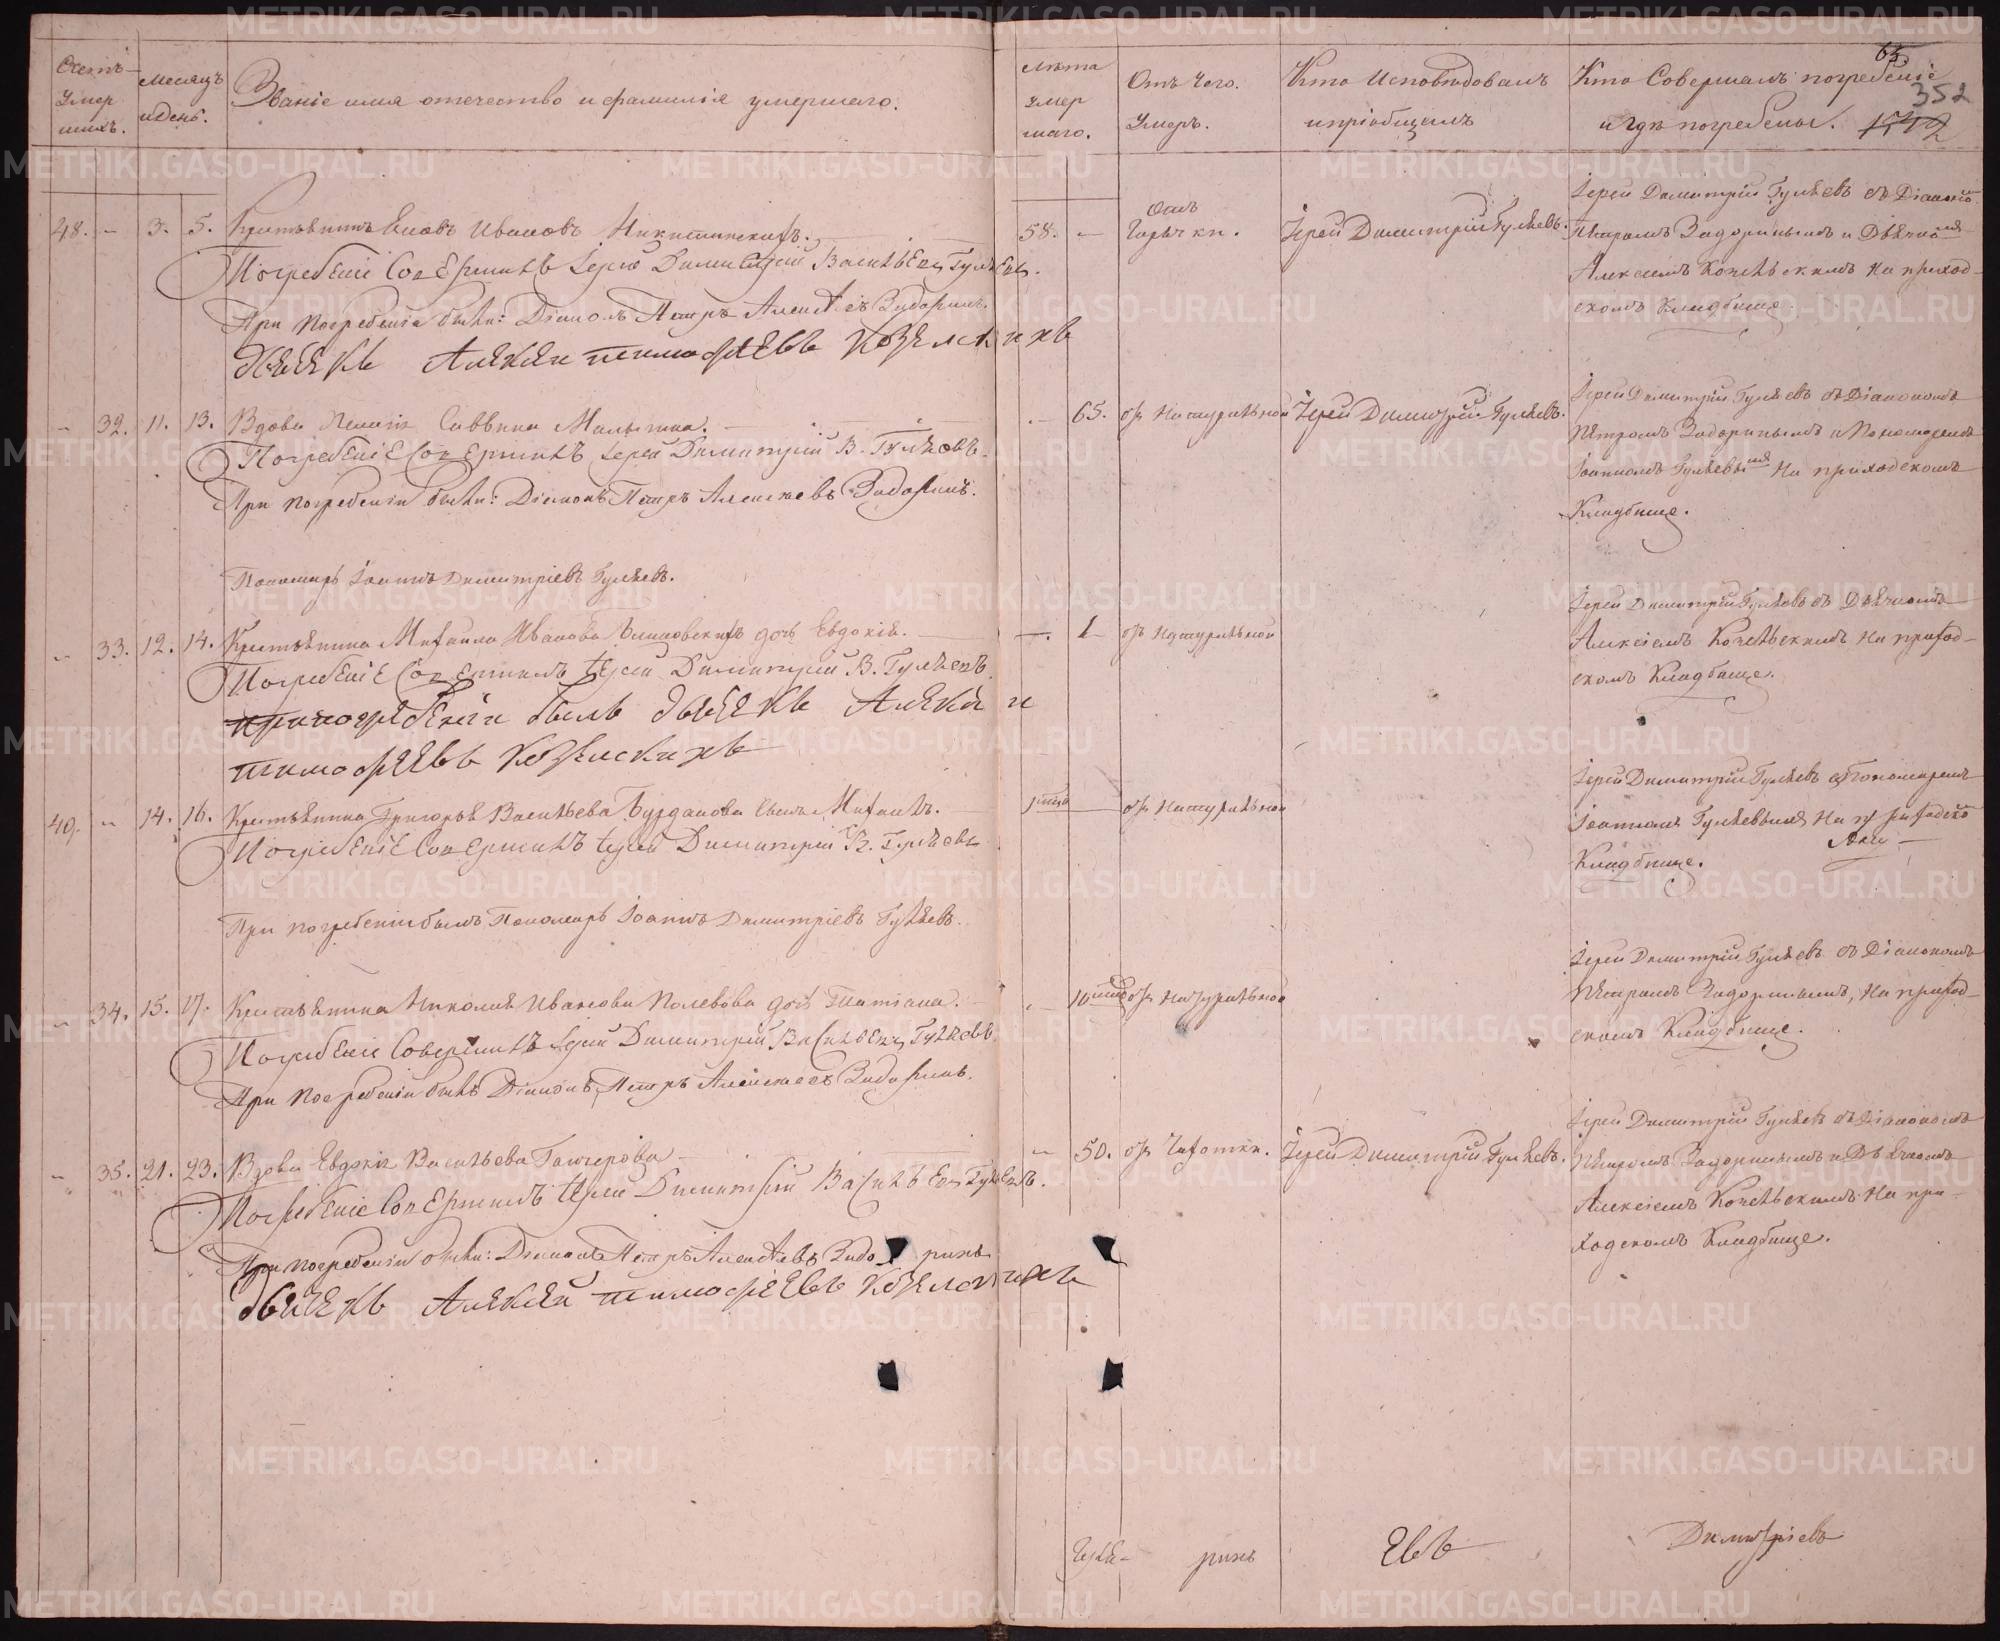 Счетъ умершихъ.
Месяцъ и день.
Званіе имя отечество и фамилія умершаго.
Лѣта умершаго.
Отъ чего умеръ.
Кто исповѣдовалъ и пріобщалъ
Кто совершалъ погребеніе и гдѣ погребены.
65
352
48. 3. 5. Крестьянинъ Иванов Никитинскихъ.
58.
отъ горячки.
Іерей Димитрій Гуляевъ.
Іерей Димитрій Гуляевъ съ Діакономъ
Петромъ Задоринымъ и Дьячкомъ
Алексіемъ на приход-
скомъ кладбище.
Погребеніе совершилъ Іерей Димитрій Васильевъ Гуляевъ.
При погребеніи были: Діаконъ Петръ Алексѣевъ Задоринъ.
дьячекъ Алексей тимофеевъ Козелскихъ
32. 11. 13. Вдова Саввина
65.
отъ натуральной
Іерей Димитрій Гуляевъ.
Іерей Димитрій Гуляевъ съ Діакономъ
Петромъ Задоринымъ и Пономаремъ
Іоанномъ Гуляевымъ на приходскомъ
кладбище.
Погребеніе совершилъ Іерей Димитрій В. Гуляевъ.
При погребеніи были: Діаконъ Петръ Алексѣевъ Задоринъ.
Пономарь Іоаннъ Димитріевъ Гуляевъ.
33. 12. 14. Крестьянина Михаила Иванова дочь Евдокія.
1
отъ натуральной
Іерей Димитрій Гуляевъ съ Дьячкомъ
Алексіемъ на приход-
скомъ кладбище.
Погребеніе совершилъ Іерей Димитрій В. Гуляевъ
при погребеніи былъ дьячекъ Алексей
тимофеевъ Козелскихъ
49. 14. 16. Крестьянина Григорья Васильева Бурдакова сынъ Михаилъ.
отъ натуральной
Іерей Димитрій Гуляевъ съ Пономаремъ
Іоанномъ Гуляевымъ на приходско
кладбище.
Погребеніе совершилъ Іерей Димитрій В. Гуляевъ
При погребеніи былъ Пономарь Іоаннъ Димитріевъ Гуляевъ.
34. 15. 17. Крестьянина Николая Иванова Полевова дочь Татіана.
10
отъ натуральной
Іерей Димитрій Гуляевъ съ Діакономъ
Петромъ Задоринымъ, на приход-
скомъ кладбище.
Погребеніе совершилъ Іерей Димитрій Васильевъ Гуляевъ.
При погребеніи былъ Діаконъ Петръ Алексѣевъ Задоринъ.
35. 21. 23. Вдова Евдокія Васильева
50.
отъ чахотки.
Іерей Димитрій Гуляевъ.
Іерей Димитрій Гуляевъ съ Діакономъ
Петромъ Задоринымъ и Дьячкомъ
Алексіемъ на при-
ходскомъ кладбище.
Погребеніе совершилъ Іерей Димитрій Васильевъ Гуляевъ.
При погребеніи были: Діаконъ Петръ Алексѣевъ Задоринъ
дьячекъ Алексей тимофеевъ Козелскихъ
Гуля-
ринъ
евъ
Димитріевъ
METRIKI.GASO-URAL.RU